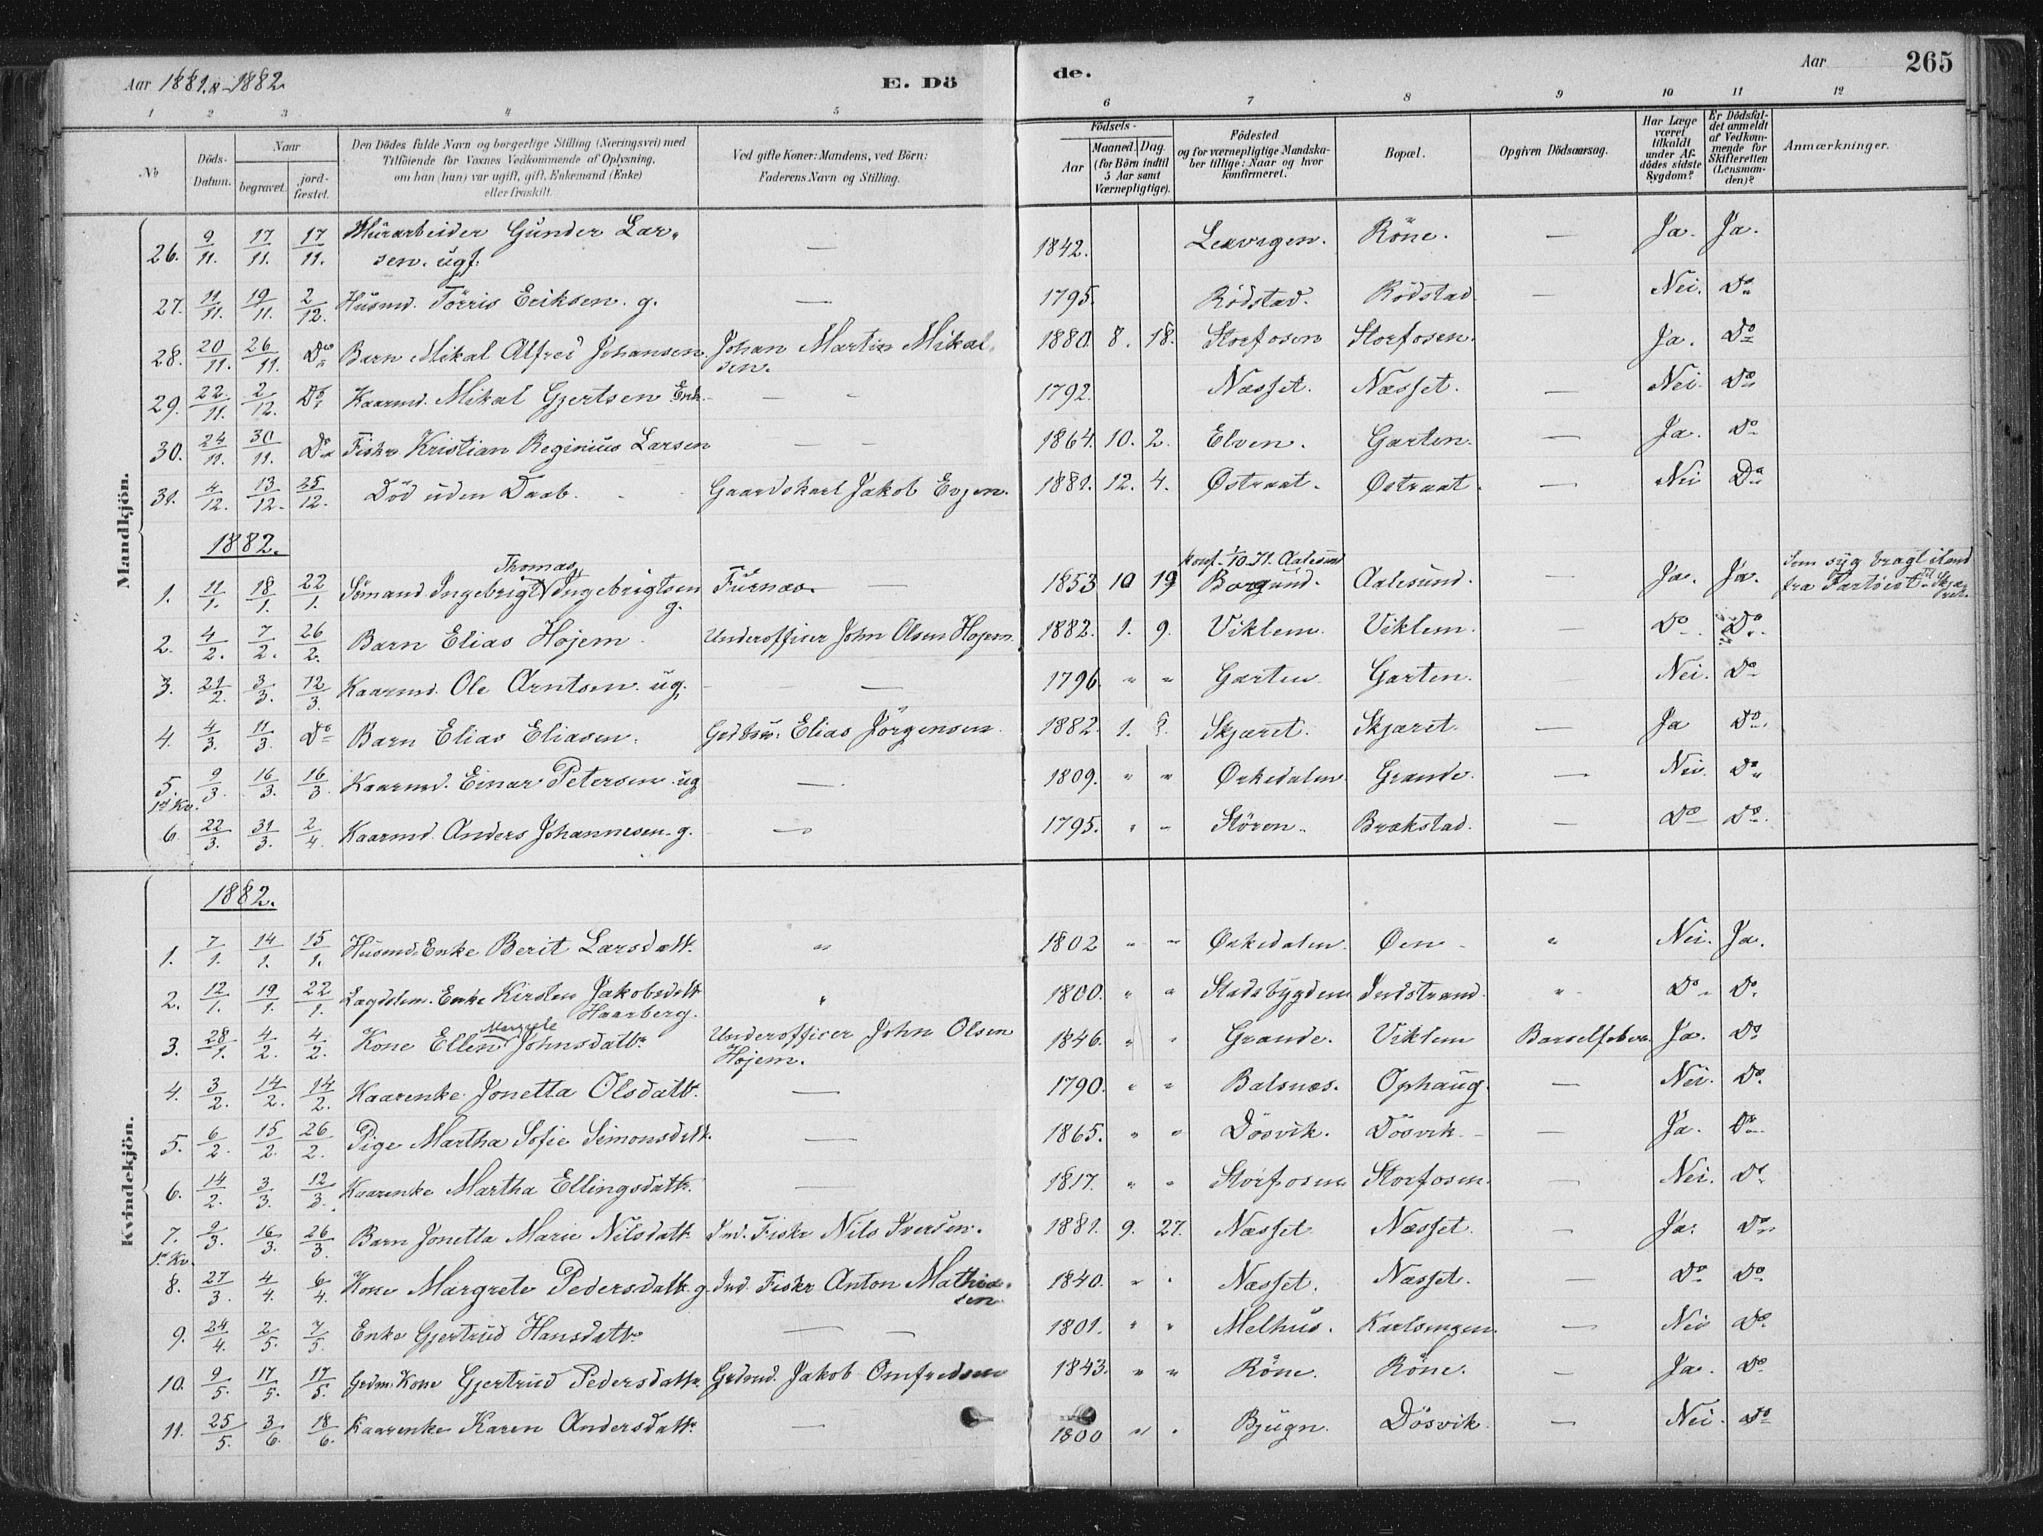 Aar 1881. & 1882. E. Döde. Aar 265
1 2 3 4 5 6 7 8 9 10 11 12
No
Döds-Datum.
Naar
begravet.
jordfæstet.
Den Dödes fulde Navn og borgerlige Stilling (Næringsvei) med
Tilföiende for Voxnes Vedkommende af Oplysning,
om han (hun) var ugift, gift, Enkemand (Enke)
eller fraskilt.
Ved gifte Koner: Mandens, ved Börn:
Faderens Navn og Stilling.
Födsels-
Aar
Maaned. Dag.
(for Börn indtil
5 Aar samt
Værnepligtige).
Födested
og for værnepligtige Mandska-
ber tillige: Naar og hvor
konfirmeret.
Bopæl.
Opgiven Dödsaarsag.
Har Læge
været
tilkaldt
under Af-
dödes sidste
Sygdom?
Er Dödsfal-
det anmeldt
af Vedkom-
mende for
Skifteretten
(Lensman-
den)?
Anmærkninger.
Mandkjön.
26. 9/11. 17/11. 17/11. Murarbeider Gunder Lar- — 1842. Lexvigen. Röne. — Ja. Ja.
sen. ugf.
27. 11/11. 19/11. 2/12. Husmd. Törris Eriksen. g. — 1795. Rödstad. Rödstad. — Nei. Do
28. 20/11. 26/11. Do Barn Mikal Alfred Johansen. Johan Martin Mikal- 1880. 8. 18. Storfosen Storfosen. Ja. Do
sen.
29. 22/11. 2/12. Do Kaarmd. Mikal Gjertsen Enk. — 1792. Næsset. Næsset. — Nei. Do
30. 24/11. 30/11. Do Fisker Kristian Reginius Larsen — 1864. 10. 2. Elven. Garten. — Ja. Do
31. 4/12. 13/12. 25/12. Död uden Daab. Gaardskarl Jakob Evjen. 1881. 12. 4. Østraat. Østraat. — Nei Do
1882.
Thomas konf. 1/10. 71. Aalesund Som syg bragt iland
1. 11/1. 18/1. 22/1. Sömand. Ingebrigt Ingebrigtsen Furnæs. 1853 10 19 Borgund. Aalesund. — Ja. Ja. fra
g.
2. 4/2. 7/2. 26/2. Barn Elias Höjem. Underofficer John Olsen Höjem. 1882. 1. 9. Viklem. Viklem. — Do Do
3. 21/2. 3/3. 12/3. Kaarmd. Ole Arntsen. ug. — 1796. " " Garten. Garten. — Nei. Do
4. 4/3. 11/3. Do Barn Elias Eliasen. Elias Jörgensen. 1882. 1. Skjæret. Skjæret. — Ja Do
5. 9/3. 16/3. 16/3. Kaarmd. Einar Petersen. ug — 1809. " " Orkedalen Grande. — Nei. Do
1st Kv.
6. 22/3. 31/3. 2/4. Kaarmd. Anders Johannesen. g. — 1795. " " Stören. Brækstad. — Do Do
Kvindekjön.
1882.
1. 7/1. 14/1. 15/1. Husmd. Enke Berit Larsdatt. " 1802 " " Orkedalen. Øen " Nei. Ja.
2. 12/1. 19/1. 22/1. Lægdslem. Enke Kirsten Jakobsdatt " 1800. " " Stadsbygden Indstrand. " Do Do
Haarberg.
Margrete
3. 28/1. 4/2. 4/2. Kone Ellen Johnsdatt. Underofficer John Olsen 1846. " " Grande. Viklem Barselfeber. Ja. Do
Höjem.
4. 3/2. 14/2. 14/2. Kaarenke. Jonetta Olsdatt. — 1790. " " Balsnæs. Ophaug. — Nei. Do
5. 6/2. 15/2. 26/2. Pige Martha Sofie Simonsdatt. — 1865. " " Dösvik. Dösvik. — Ja. Do
6. 14/2. 3/3. 12/3. Kaarenke Martha Ellingsdatt. — 1817. " " Storfosen Storfosen. — Nei. Do
7. 9/3. 16/3. 26/3. Barn Jonetta Marie Nilsdatt. Ind. Fisker Nils Iversen. 1881. 9. 27. Næsset Næsset. — Ja. Do
1st Kv.
8. 27/3. 4/4. 6/4. Kone Margrete Pedersdatt. g. Ind. Fisker Anton Mathia- 1840. " " Næsset. Næsset. — Do Do
sen
9. 24/4. 2/5. 7/5. Enke Gjertrud Hansdatt. — 1801. " " Melhus. Karlsengen. — Nei Do
10. 9/5. 17/5. 17/5. Grdm. Kone Gjertrud Pedersdatt. Grdmd. Jakob Omfredsen 1843. " " Röne. Röne. — Ja. Do
11. 25/5. 3/6. 18/6. Kaarenke Karen Andersdatt. — 1800 " " Bjugn. Dösvik. — Nei. Do